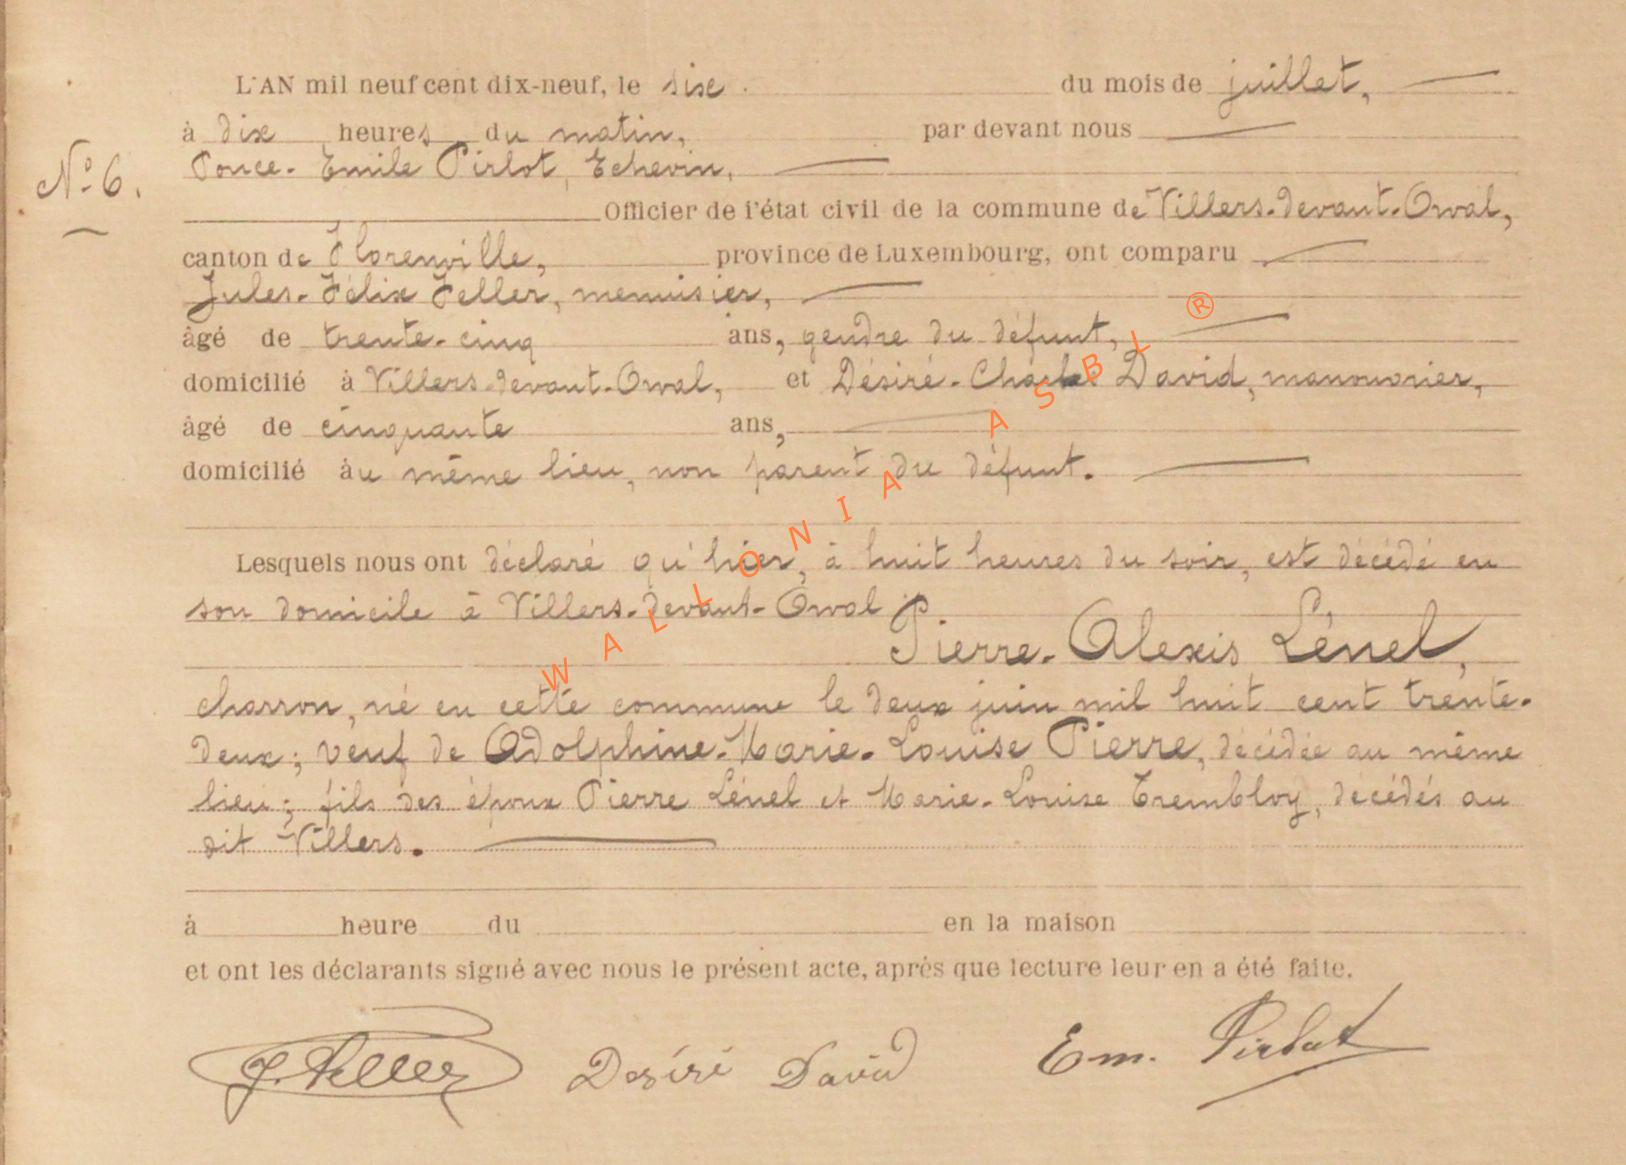 L'AN mil neuf cent dix-neuf, le six du mois de juillet,
à dix heures du matin, par devant nous
Ponce-Emile Pirlot, Echevin,
N° 6.
Officier de l'état civil de la commune de Villers-devant-Orval,
canton de Florenville, province de Luxembourg, ont comparu
Jules-Félix Feller, menuisier,
âgé de trente-cinq ans, gendre du défunt,
domicilié à Villers-devant-Orval, et Désiré-Charles David, manouvrier,
âgé de cinquante ans,
domicilié au même lieu, non parent du défunt.
Lesquels nous ont déclaré qu'hier, à huit heures du soir, est décédé en
son domicile à Villers-devant-Orval
Pierre-Alexis Lénel,
charron, né en cette commune le deux juin mil huit cent trente-
deux; veuf de Adolphine-Marie-Louise Pierre, décédée au même
lieu; fils des époux Pierre Lénel et Marie-Louise Trembloy, décédés au
dit Villers.
à heure du en la maison
et ont les déclarants signé avec nous le présent acte, après que lecture leur en a été faite.
J. Feller Désiré David Em. Pirlot
WALLONIA ASBL ®